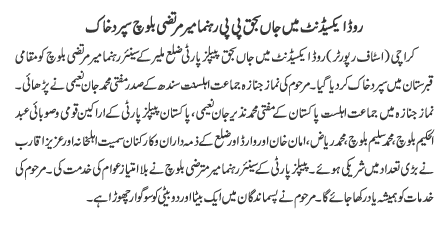 روڈ ایکسیڈنٹ میں جاں بحق پی پی رہنما میر مرتضی بلوچ سپرد خاک
کراچی (اسٹاف رپورٹر) روڈ ایکسیڈنٹ میں جاں بحق پیپلز پارٹی ضلع ملیر کے سینئر رہنما میر مرتضی بلوچ کو مقامی
قبرستان میں سپرد خاک کر دیا گیا۔ مرحوم کی نماز جنازہ جماعت اہلسنت سندھ کے صدر مفتی محمد جان نعیمی نے پڑھائی۔
نماز جنازہ میں جماعت اہلسنت پاکستان کے مفتی محمد نذیر جان نعیمی، پاکستان پیپلز پارٹی کے اراکین قومی وصوبائی عبد
الحکیم بلوچ، محمد سلیم بلوچ، محمد ریاض، امان خان اور وارڈ اور ضلع کے ذمہ داران و کارکنان سمیت اہلخانہ اور عزیز اقارب
نے بڑی تعداد میں شریک ہوئے۔ پیپلز پارٹی کے سینئر رہنما میر مرتضی بلوچ نے بلا امتیاز عوام کی خدمت کی۔ مرحوم کی
خدمات کو ہمیشہ یاد رکھا جائے گا۔ مرحوم نے پسماندگان میں ایک بیٹا اور دو بیٹی کو سوگوار چھوڑا ہے۔